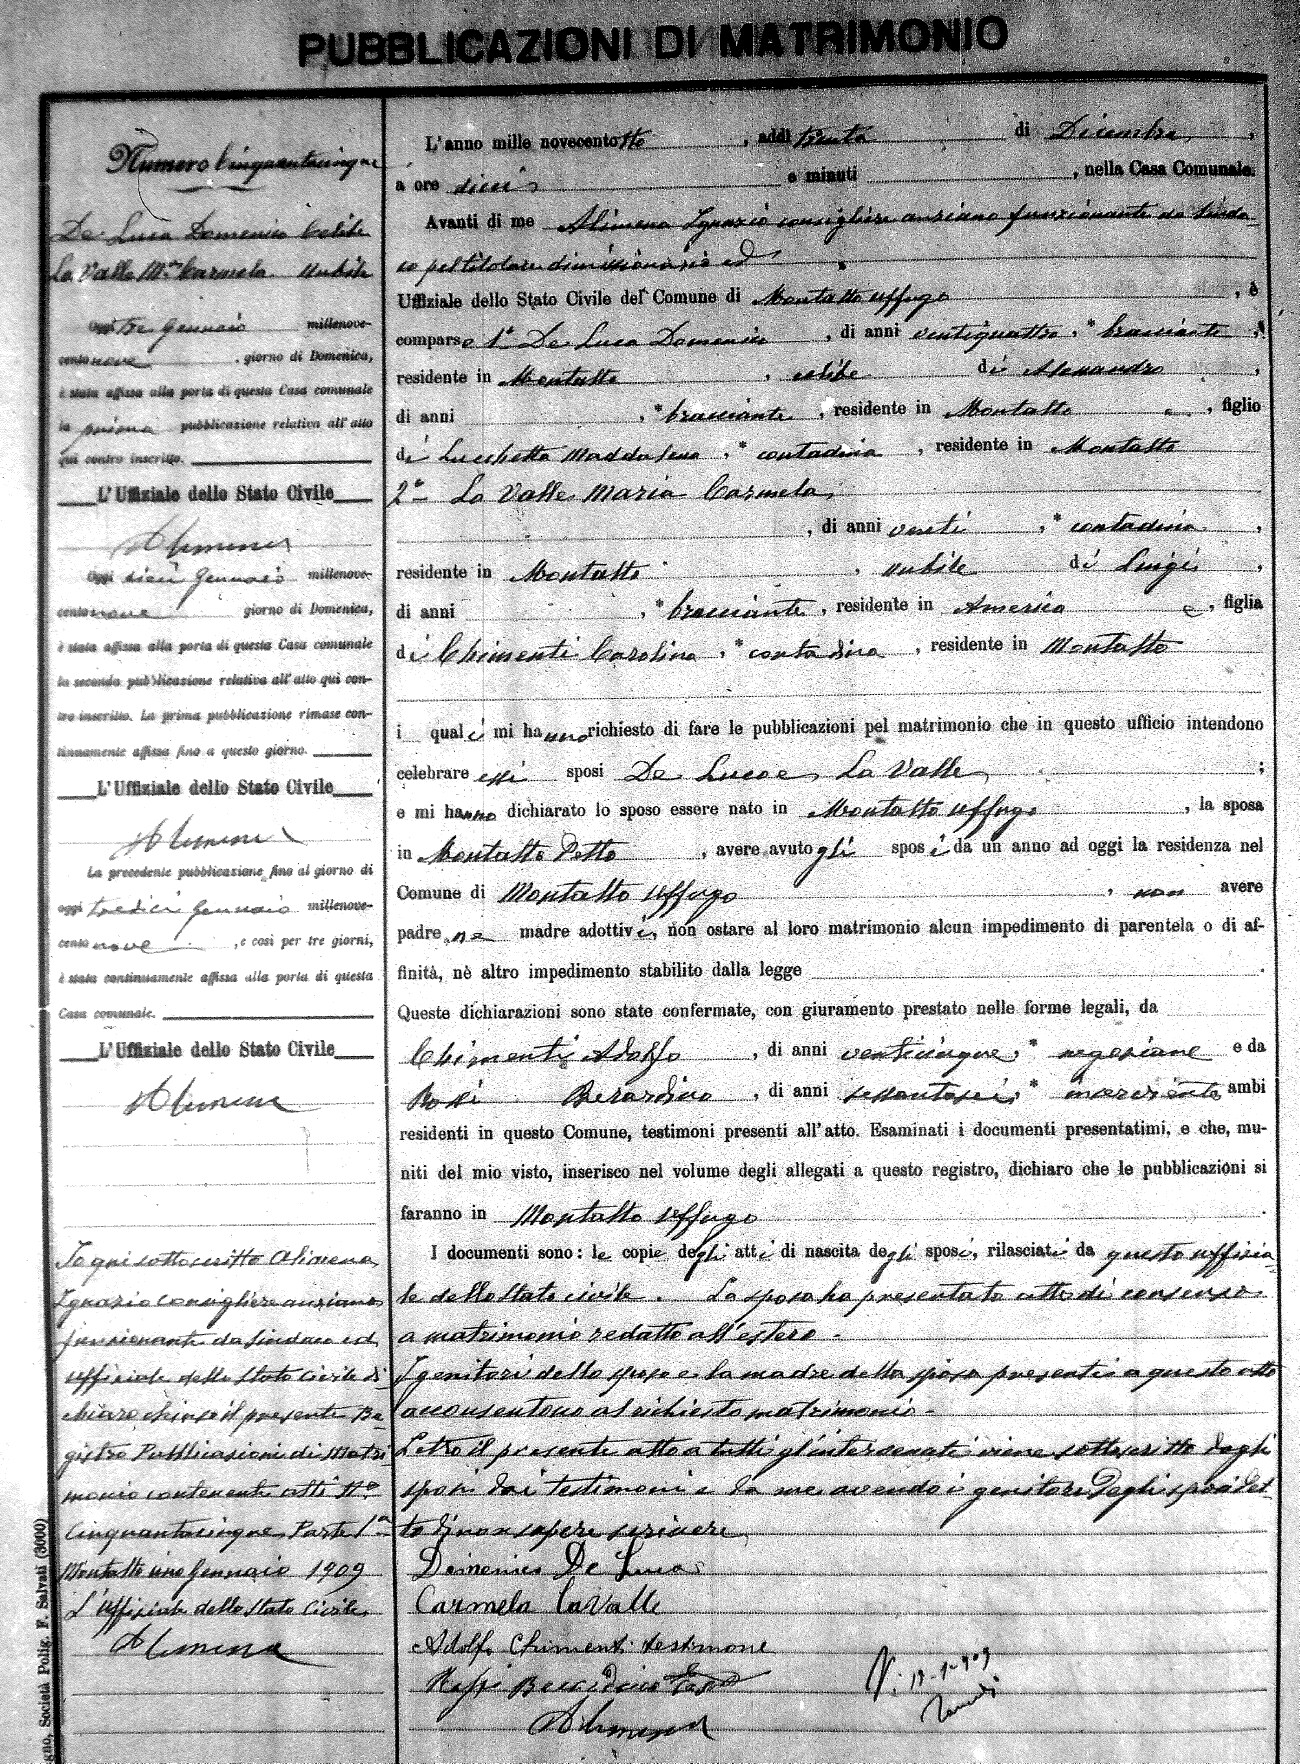 PUBBLICAZIONI DI MATRIMONIO
Numero Cinquantacinque
De Luca Domenico Celibe
La Valle Mª Carmela Nubile
Oggi tre Gennaio millenove-
cento nove, giorno di Domenica,
è stata affissa alla porta di questa Casa comunale
la prima pubblicazione relativa all'atto
qui contro inscritto.
L'Uffiziale dello Stato Civile
Alimena
Oggi dieci Gennaio millenove-
cento nove giorno di Domenica,
è stata affissa alla porta di questa Casa comunale
la seconda pubblicazione relativa all'atto qui con-
tro inscritto. La prima pubblicazione rimase con-
tinuamente affissa fino a questo giorno.
L'Uffiziale dello Stato Civile
Alimena
La precedente pubblicazione fino al giorno di
oggi tredici Gennaio millenove-
cento nove, e così per tre giorni,
è stata continuamente affissa alla porta di questa
Casa comunale.
L'Uffiziale dello Stato Civile
Alimena
Io qui sottoscritto Alimena
Ignazio consigliere anziano
funzionante da Sindaco ed
uffiziale dello Stato Civile di
chiaro chiuso il presente Re
gistro Pubblicazioni di Matri
monio contenente atti Nº
Cinquantacinque Parte 1ª
Montalto uno Gennaio 1909
L'uffiziale dello Stato Civile
Alimena
L'anno mille novecento otto, addì trenta di Dicembre,
a ore dieci e minuti , nella Casa Comunale.
Avanti di me Alimena Ignazio consigliere anziano funzionante da Sinda-
co pel titolare dimissionario ed
Uffiziale dello Stato Civile del Comune di Montalto Uffugo, è
comparso 1º De Luca Domenico, di anni ventiquattro, * bracciante,
residente in Montalto, celibe di Alessandro,
di anni , * bracciante, residente in Montalto e, figlio
di Lucchetta Maddalena, * contadina, residente in Montalto
2º La Valle Maria Carmela,
, di anni venti, * contadina,
residente in Montalto, nubile di Luigi,
di anni , * bracciante, residente in America e, figlia
di Chimenti Carolina, * contadina, residente in Montalto
i quali mi hanno richiesto di fare le pubblicazioni pel matrimonio che in questo ufficio intendono
celebrare essi sposi De Luca e La Valle;
e mi hanno dichiarato lo sposo essere nato in Montalto Uffugo, la sposa
in Montalto Detto, avere avuto gli sposi da un anno ad oggi la residenza nel
Comune di Montalto Uffugo, non avere
padre ne madre adottivi, non ostare al loro matrimonio alcun impedimento di parentela o di af-
finità, nè altro impedimento stabilito dalla legge.
Queste dichiarazioni sono state confermate, con giuramento prestato nelle forme legali, da
Chimenti Adolfo, di anni venticinque, * negoziante e da
Rossi Berardino, di anni sessantasei, * inserviente, ambi
residenti in questo Comune, testimoni presenti all'atto. Esaminati i documenti presentatimi, e che, mu-
niti del mio visto, inserisco nel volume degli allegati a questo registro, dichiaro che le pubblicazioni si
faranno in Montalto Uffugo
I documenti sono: le copie degli atti di nascita degli sposi, rilasciati da questo uffizia-
le dello stato civile. La sposa ha presentato atto di consenso
a matrimonio redatto all'estero.
I genitori dello sposo e la madre della sposa presenti a questo atto
acconsentono al richiesto matrimonio.
Letto il presente atto a tutti gl'intervenuti viene sottoscritto dagli
sposi dai testimoni e da me avendo i genitori degli sposi det-
to di non sapere scrivere
Domenico De Luca
Carmela La Valle
Adolfo Chimenti testimone
Rossi Berardino
Alimena
V. 19-1-909
gno, Società Polig. F. Salvati (3000)